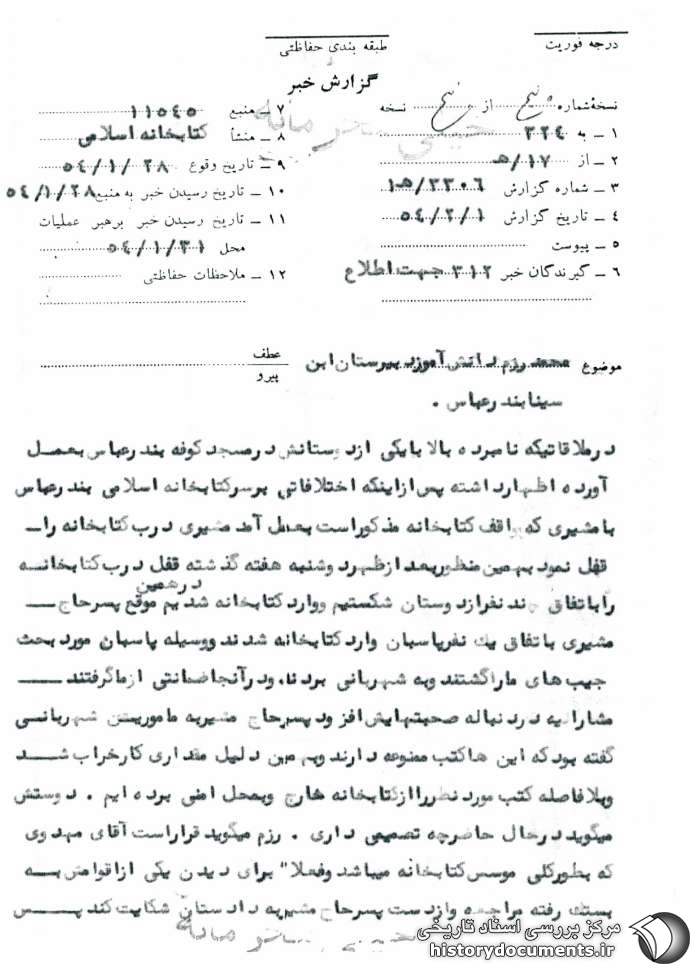 درجه فوریت
طبقه بندی حفاظتی
گزارش خبر
نسخهٔ شماره پنج از پنج نسخه
۱ ــ به ۳۲۴
۲ ــ از ۱۷/هـ
۳ ــ شماره گزارش ۲۳۰۶/هـ۱
۴ ــ تاریخ گزارش ۵۴/۲/۱
۵ ــ پیوست
۶ ــ گیرندگان خبر ۳۱۲ جهت اطلاع
۷ ــ منبع ۱۱۵۴۵
۸ ــ منشأ کتابخانه اسلامی
۹ ــ تاریخ وقوع ۵۴/۱/۲۸
۱۰ ــ تاریخ رسیدن خبر به منبع ۵۴/۱/۲۸
۱۱ ــ تاریخ رسیدن خبر برهبر عملیات
محل ۵۴/۱/۳۱
۱۲ ــ ملاحظات حفاظتی
موضوع محمد رزم دانش آموز دبیرستان ابن
سینا بندرعباس .
عطف
پیرو
در ملاقاتیکه نامبرده بالا با یکی از دوستانش در مسجد کوفه بندرعباس بعمل
آورده اظهار داشته پس از اینکه اختلافاتی بر سر کتابخانه اسلامی بندرعباس
با مشیری که واقف کتابخانه مذکور است بعمل آمد مشیری درب کتابخانه را ــ
قفل نمود بهمین منظور بعد از ظهر دوشنبه هفته گذشته قفل درب کتابخانه
را باتفاق چند نفر از دوستان شکستیم و وارد کتابخانه شدیم در همین موقع پسر حاج ــ
مشیری باتفاق یک نفر پاسبان وارد کتابخانه شدند و وسیله پاسبان مورد بحث
جیب های ما را گشتند و به شهربانی بردند. و در آنجا ضمانتی از ما گرفتند ــ
مشارالیه در دنباله صحبتهایش افزود پسر حاج مشیر به مامورین شهربانی
گفته بود که این ها کتب ممنوعه دارند و بهمین دلیل مقداری کار خراب شد
و بلافاصله کتب مورد نظر را از کتابخانه خارج و بمحل امنی برده ایم . دوستش
میگوید در حال حاضر چه تصمیمی داری . رزم میگوید قرار است آقای مهدوی
که بطور کلی موسس کتابخانه میباشد و فعلا" برای دیدن یکی از اقوامش به
بستک رفته مراجعه و از دست پسر حاج مشیر به دادستان شکایت کند پس
مرکز بررسی اسناد تاریخی
historydocuments.ir